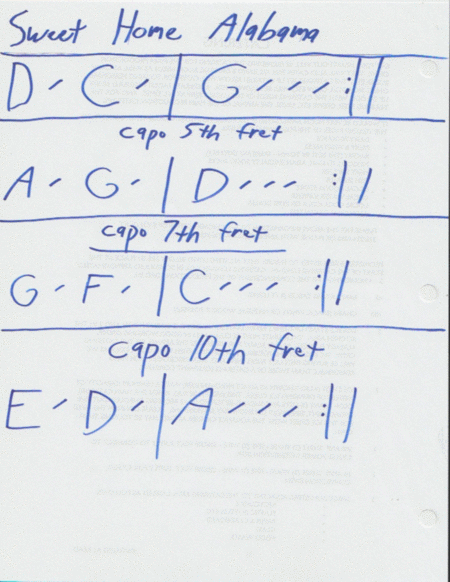 Sweet Home Alabama
D / C / | G / / / :||
capo 5th fret
A / G / | D / / / :||
capo 7th fret
G / F / | C / / / :||
capo 10th fret
E / D / | A / / / :||